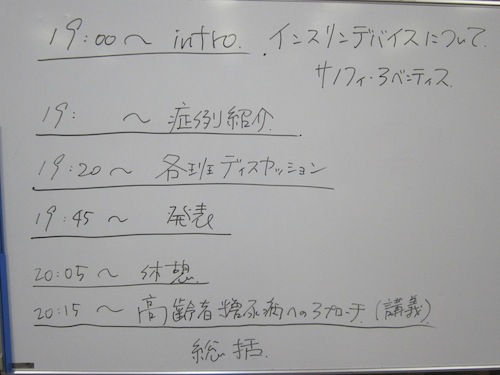 19:00～ intro. インスリンデバイスについて.
サノフィ・アベンティス
19: ～ 症例紹介
19:20～ 各班ディスカッション
19:45～ 発表
20:05～ 休憩
20:15～ 高齢者糖尿病へのアプローチ(講義)
総括